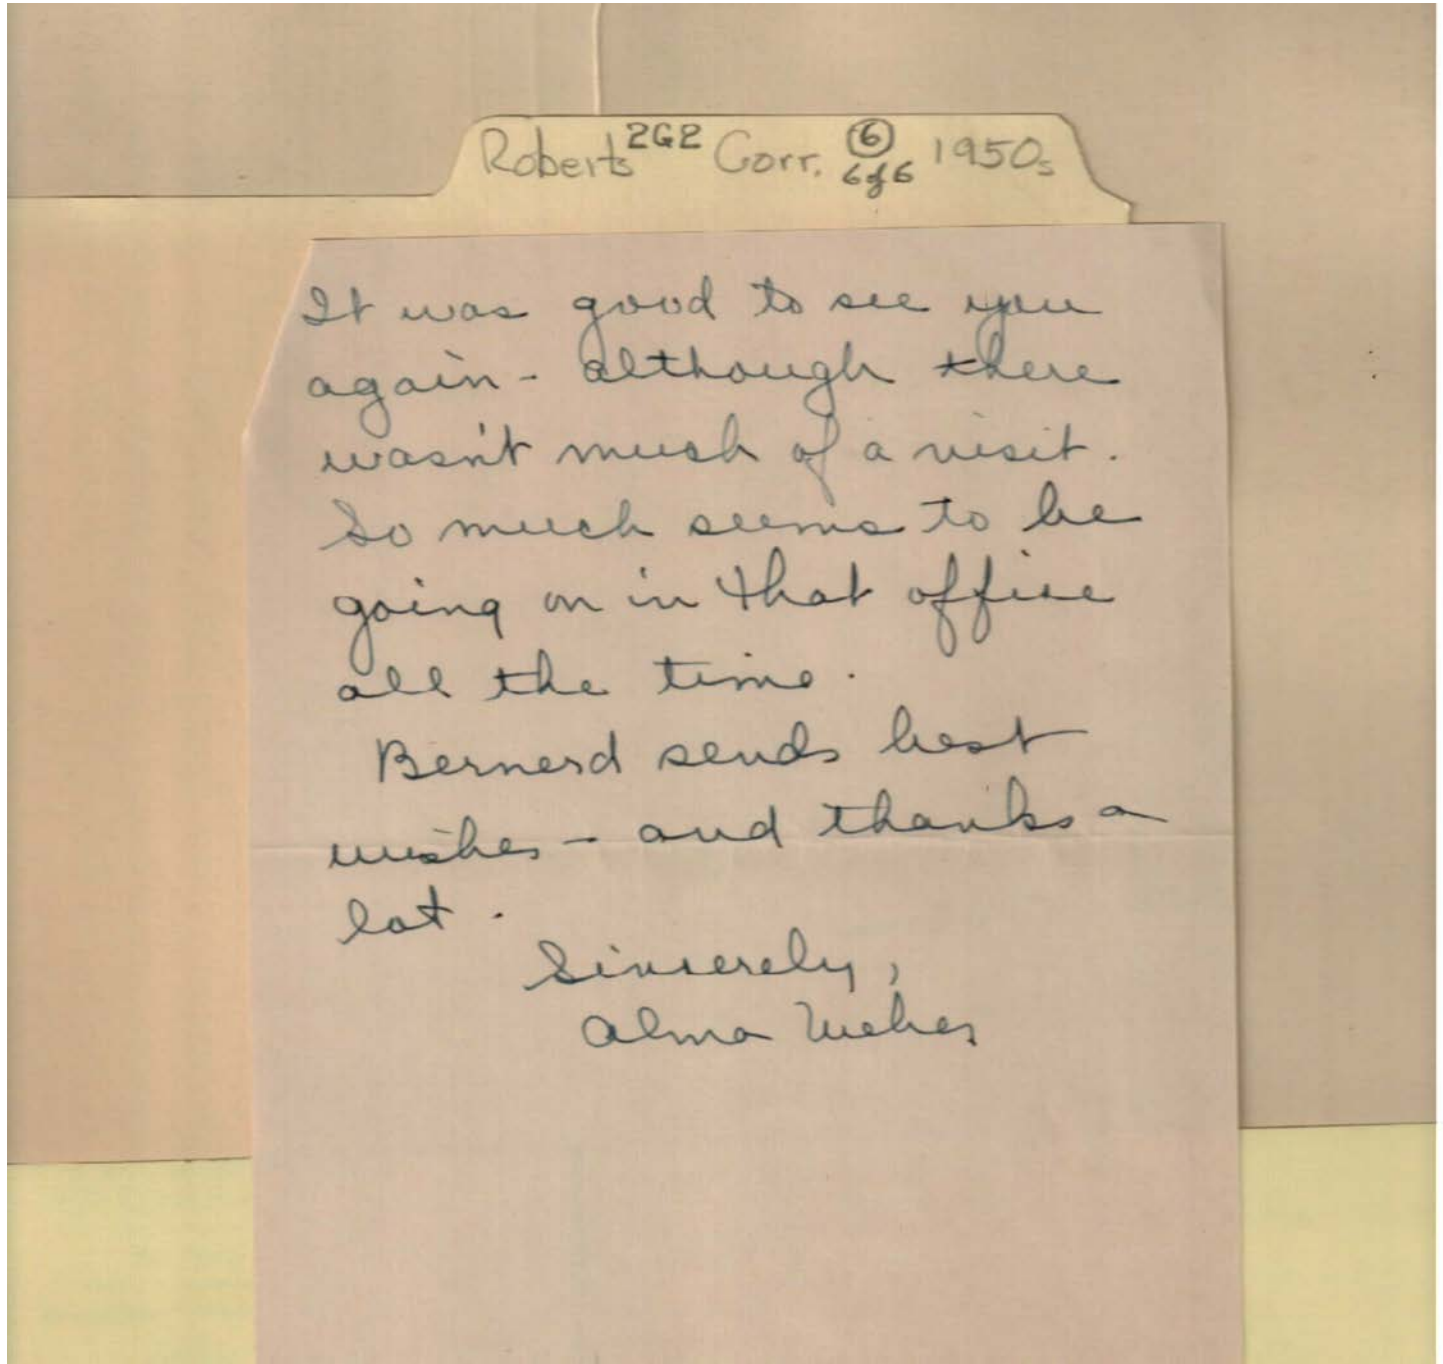 Roberts 2G2 Corr. 6 1950s
6 of 6
It was good to see you
again - although there
wasn't much of a visit.
So much seems to be
going on in that office
all the time.
Bernerd sends best
wishes - and thanks a
lot.
Sincerely,
Alma